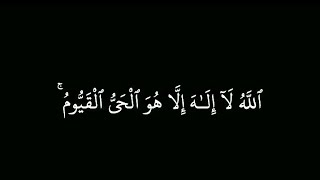 ٱللَّهُ لَآ إِلَـٰهَ إِلَّا هُوَ ٱلْحَىُّ ٱلْقَيُّومُ ۚ